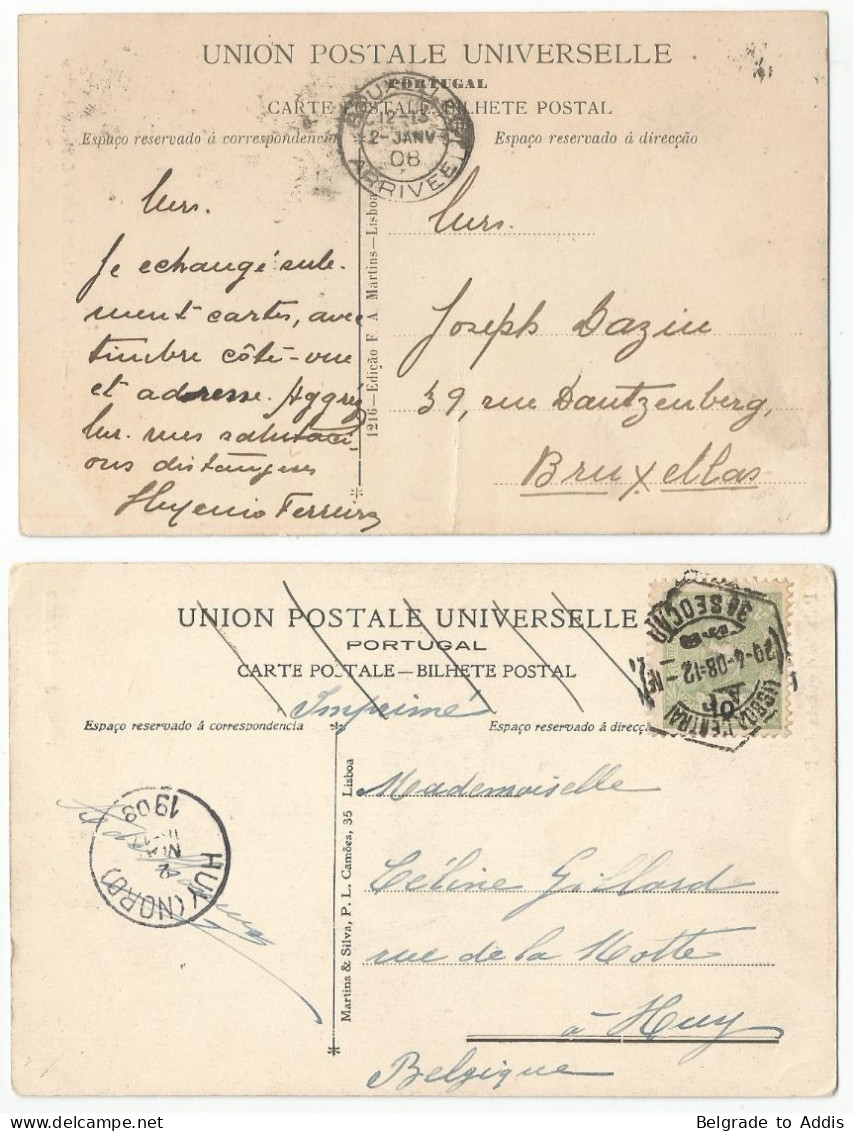 UNION POSTALE UNIVERSELLE
PORTUGAL
CARTE POSTALE-BILHETE POSTAL
Espaço reservado á correspondencia
Espaço reservado á direcção
12-13
2-JANV
08
ARRIVEE
1216—Edição F A Martins—Lisboa
Je echangé sule-
ment cartes, avec
timbre côté-vue
et adresse. Aggréz
mes salutaci
ons distingues
Ferreira
Joseph Dazin
39, rue Dautzenberg,
Bruxellas
UNION POSTALE UNIVERSELLE
PORTUGAL
CARTE POSTALE—BILHETE POSTAL
Imprimé
Espaço reservado á correspondencia
Espaço reservado á direcç
3ª SECÇÃO
29-4-08=12
LISBOA CENTRAL
HUY (NORD)
1908
Martins & Silva, P. L. Camões, 35 Lisboa
Mademoiselle
Céline Gillard
rue de la Motte
à Huy
Belgique
Belgrade to Addis